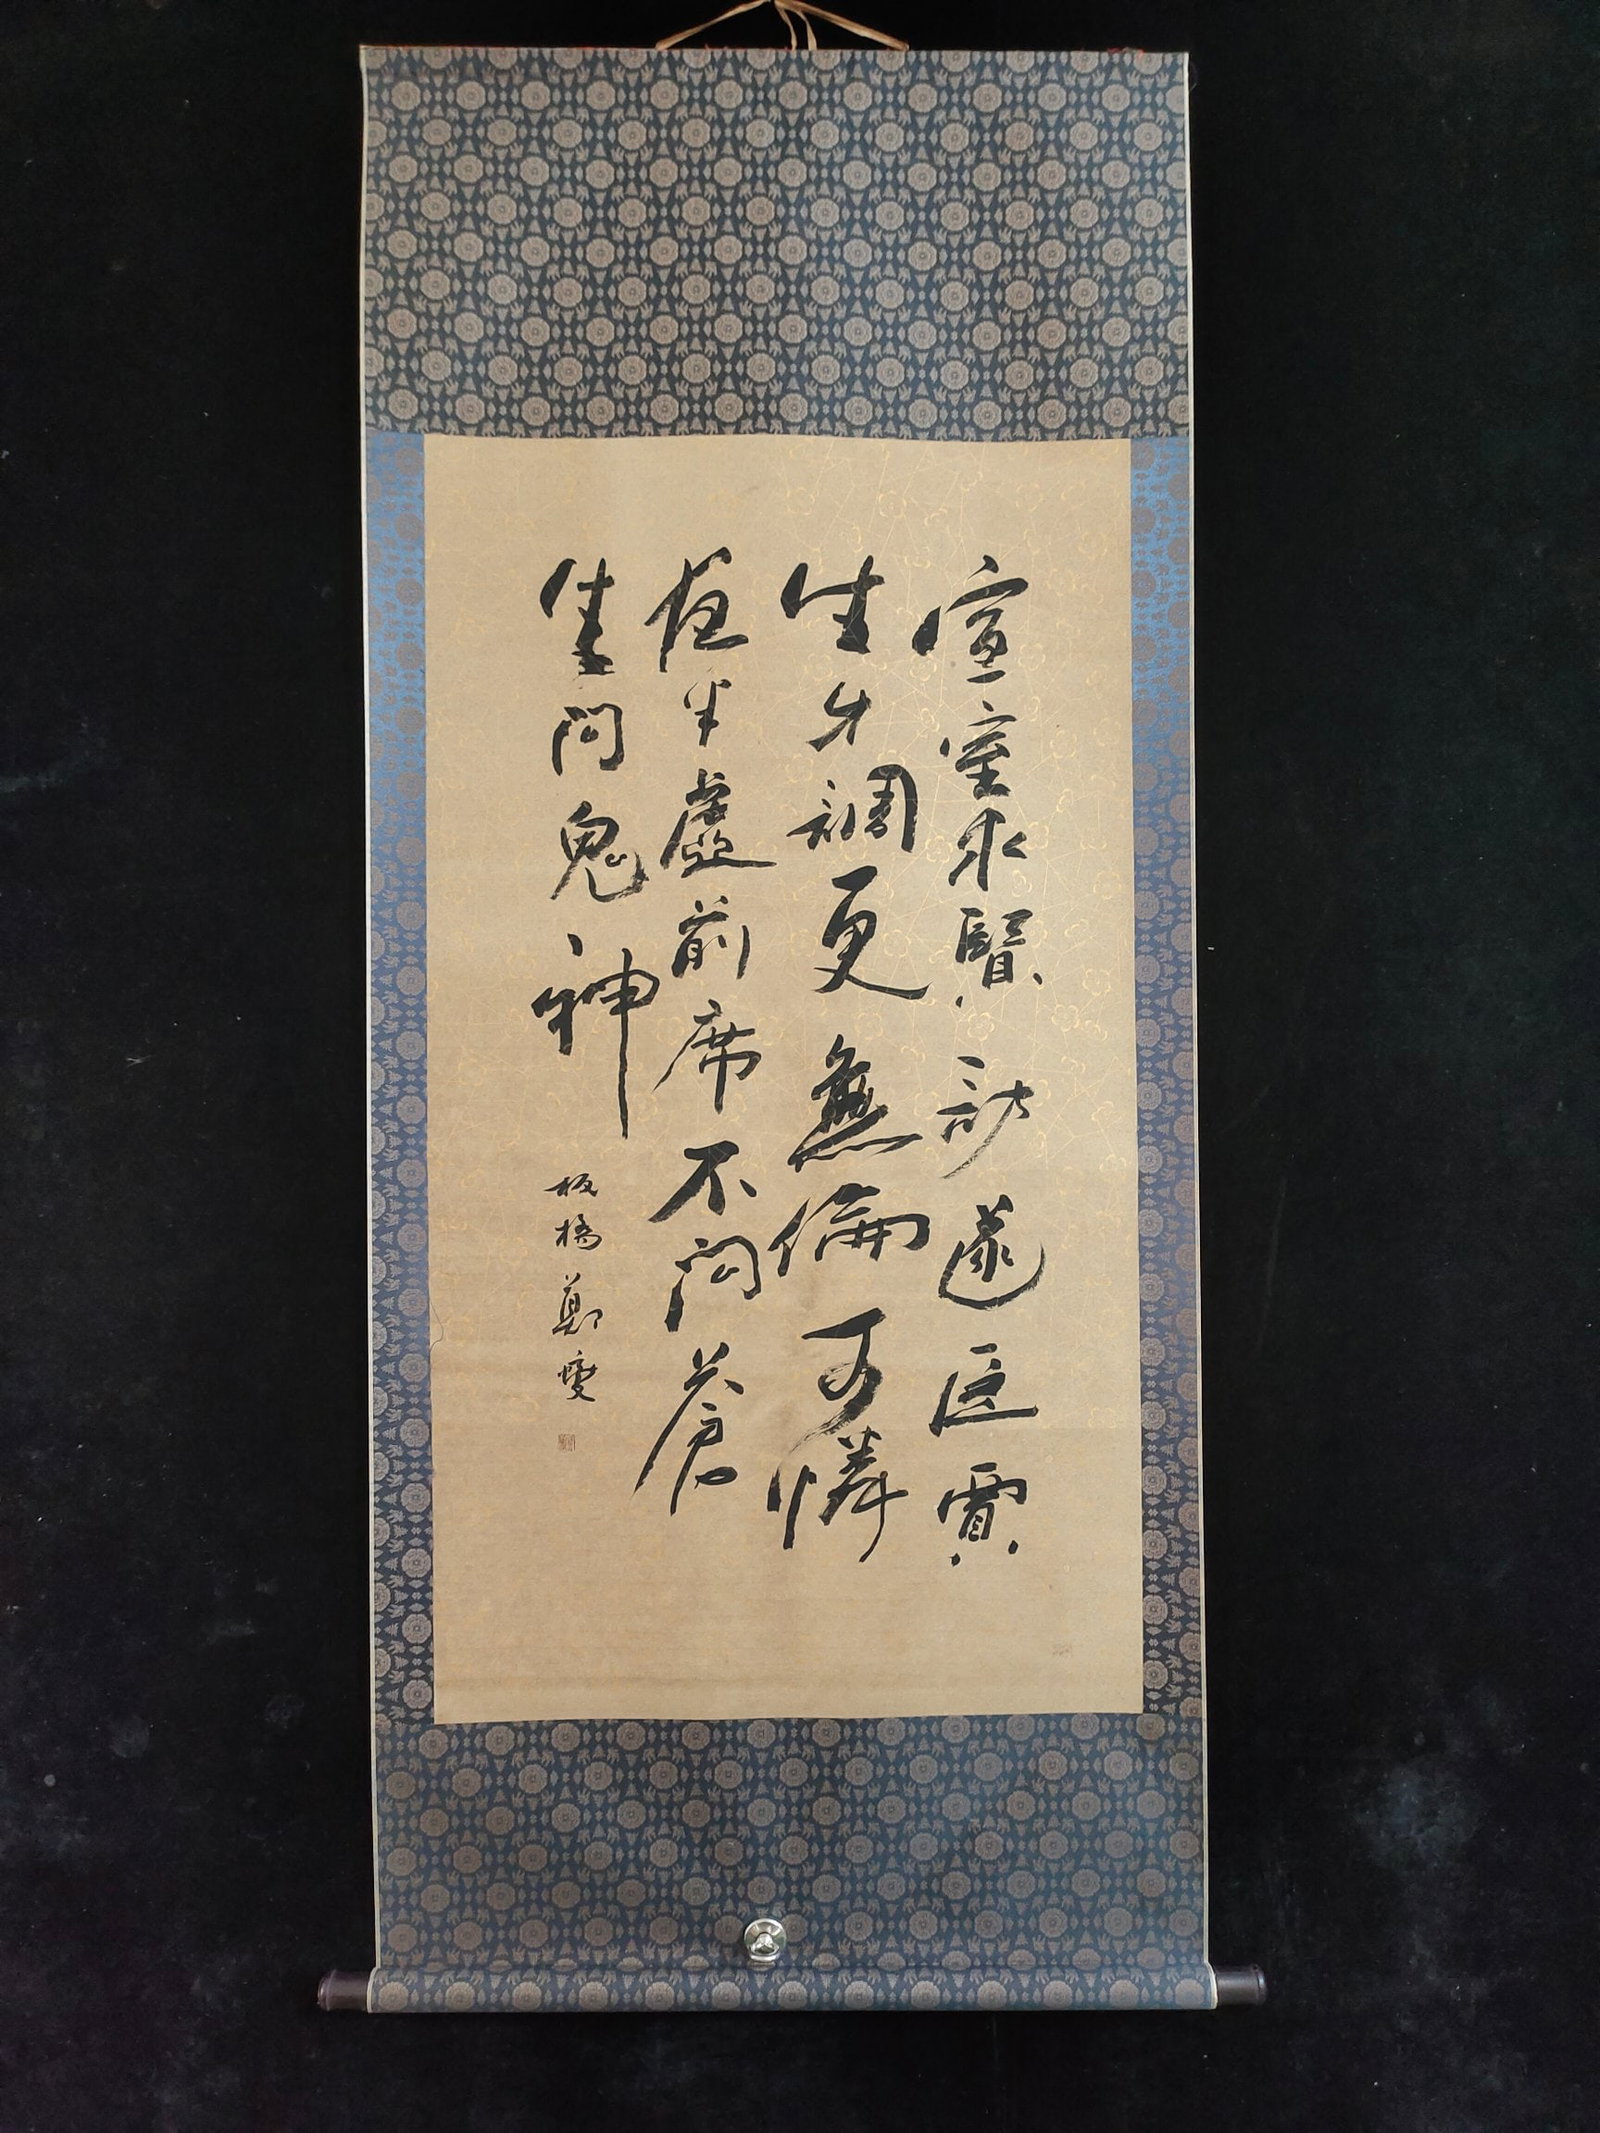 宣室求賢訪逐臣賈
生才調更無倫可憐
夜半虛前席不問蒼
生問鬼神
板橋鄭燮